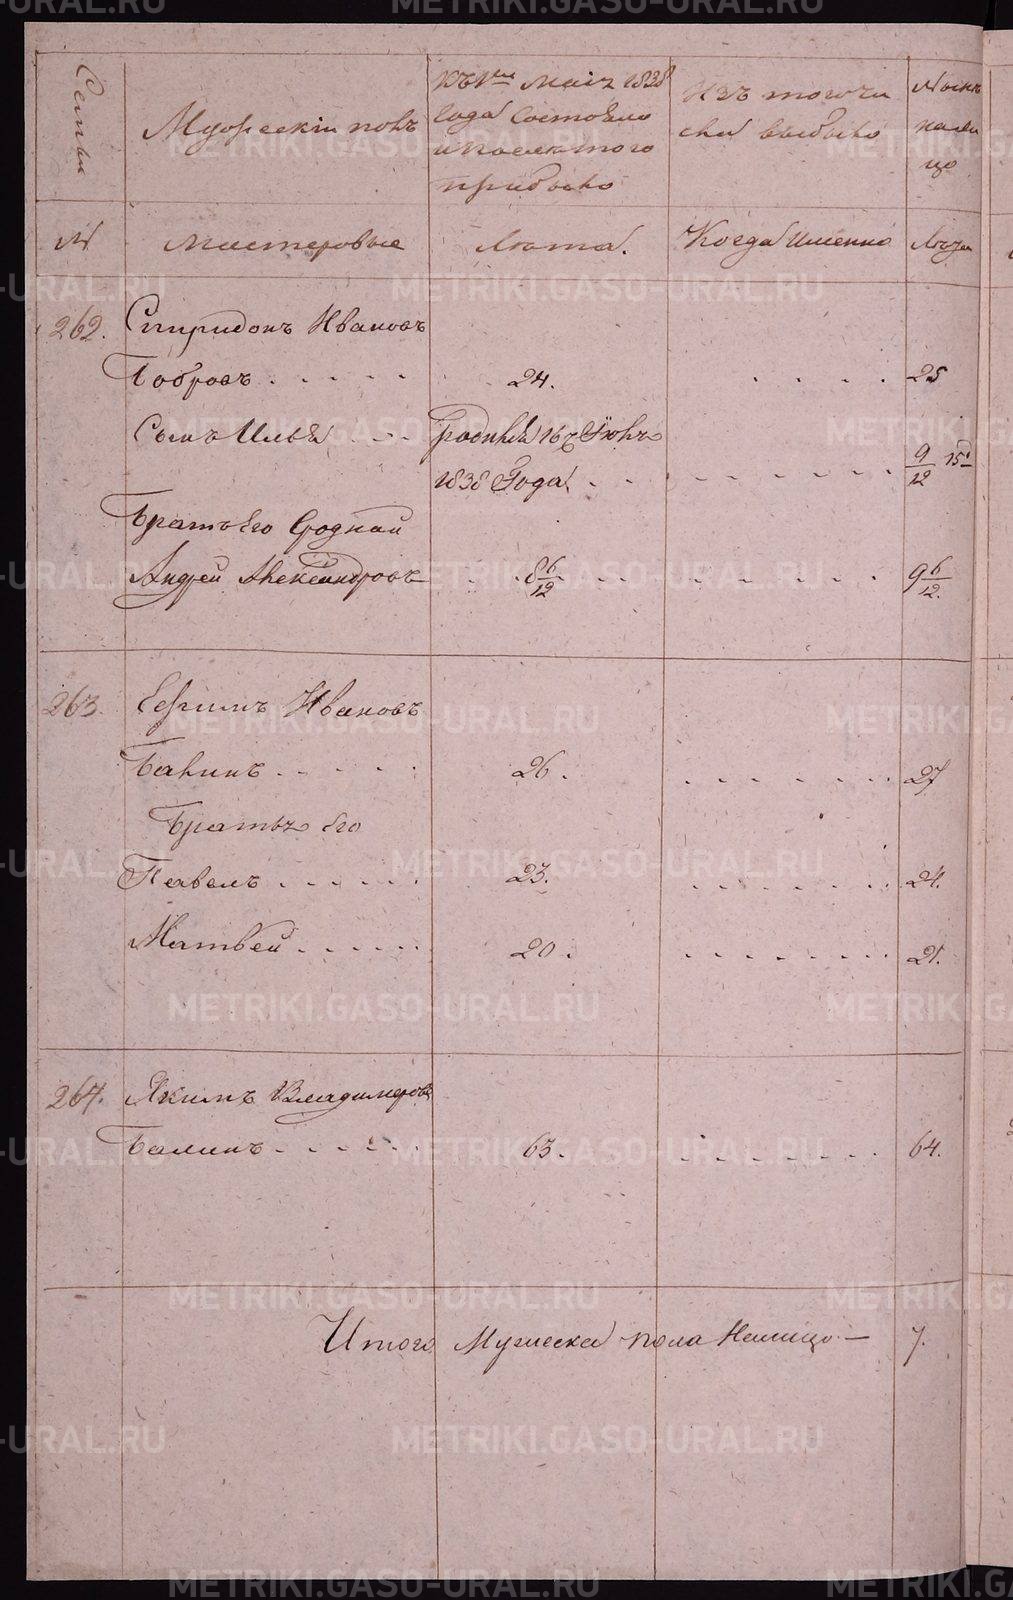 Семьи
Мужескій полъ
Къ 1му маія 1838
года состояло
и после того
прибыло
Изъ того чи
сла выбыло
Нынѣ
нали
цо
№
мастеровые
Лѣта.
Когда Имянно
Лѣта
262. Спиридонъ Ивановъ
Бобровъ . . . . . 24. . . . . 25
Сынъ Илья . . . родился 16го Іюня
1838 Года. . . . . . . . . 9/12 15д
Братъ Его Сродной
Андрей Александровъ . . 8 6/12 . . . . . . . . 9 6/12.
263. Ефимъ Ивановъ
Балинъ . . . . . . 26. . . . . . . . 27
Братья Его
Павелъ . . . . . . 23. . . . . . . . 24.
Матвей . . . . . 20. . . . . . . . 21.
264. Якимъ Владимеровъ
Балинъ . . . . . . 63. . . . . . . . 64.
Итого Мужеска пола Налицо — 7.
METRIKI.GASO-URAL.RU